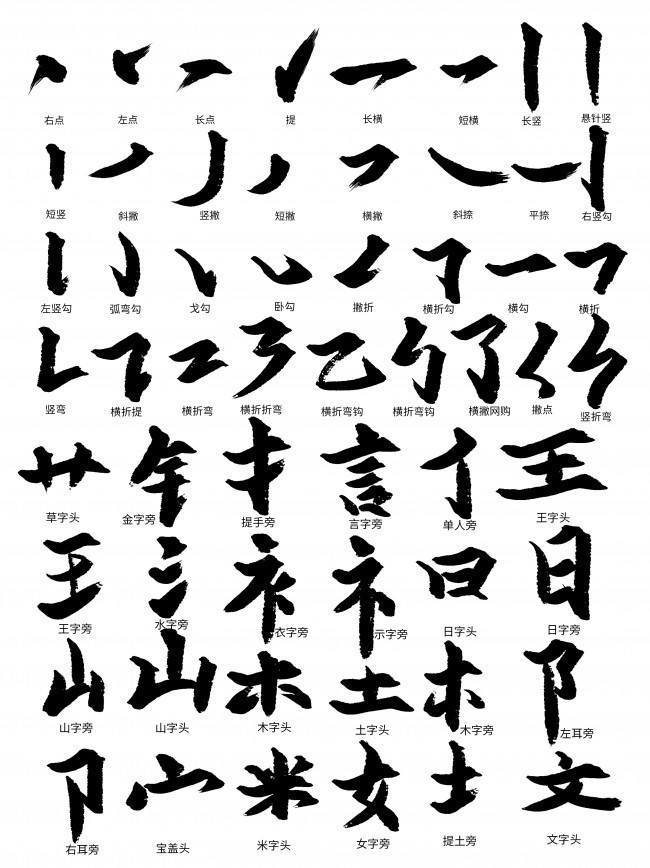 右点 左点 长点 提 长横 短横 长竖 悬针竖
短竖 斜撇 竖撇 短撇 横撇 斜捺 平捺 右竖勾
左竖勾 弧弯勾 戈勾 卧勾 撇折 横折勾 横勾 横折
竖弯 横折提 横折弯 横折折弯 横折弯钩 横折弯钩 横撇网购 撇点 竖折弯
艹 钅 扌 言 亻 王
草字头 金字旁 提手旁 言字旁 单人旁 王字头
王 氵 衤 礻 日 日
王字旁 水字旁 衣字旁 示字旁 日字头 日字旁
山 山 木 土 木 阝
山字旁 山字头 木字头 土字头 木字旁 左耳旁
卩 宀 米 女 土 文
右耳旁 宝盖头 米字头 女字旁 提土旁 文字头